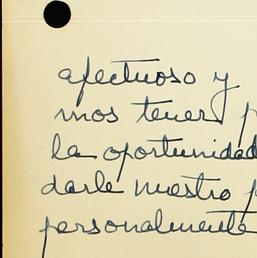 afectuoso y
mos tener p
la oportunidad
darle nuestro p
personalmente